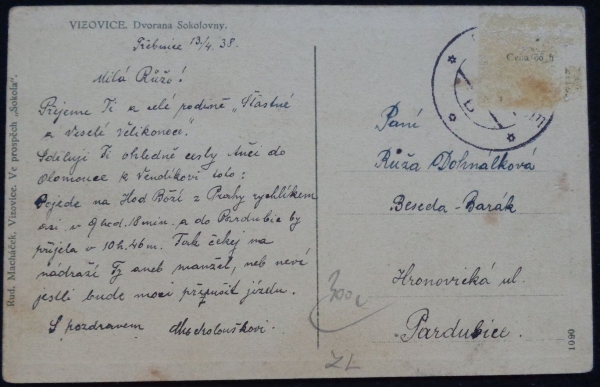 VIZOVICE. Dvorana Sokolovny.
Třebnice 13/4. 38.
Milá Růžo!
Přejeme Ti a celé rodině „Šťastné
a Veselé Velikonoce."
Sděluji Ti ohledně cesty Anči do
Olomouce k Vendíkovi toto:
Pojede na Hod Boží z Prahy rychlíkem
asi v 9 hod. 18 min. a do Pardubic by
přijela v 10 h. 46 m. Tak čekej na
nádraží Ty aneb manžel, neb neví
jestli bude moci přerušit jízdu.
S pozdravem
Rud. Macháček, Vizovice. Ve prospěch „Sokola".
Cena 60 h
Paní
Růža Dohnalková
Beseda-Barák
Hronovická ul.
Pardubice.
300
ZL
1090